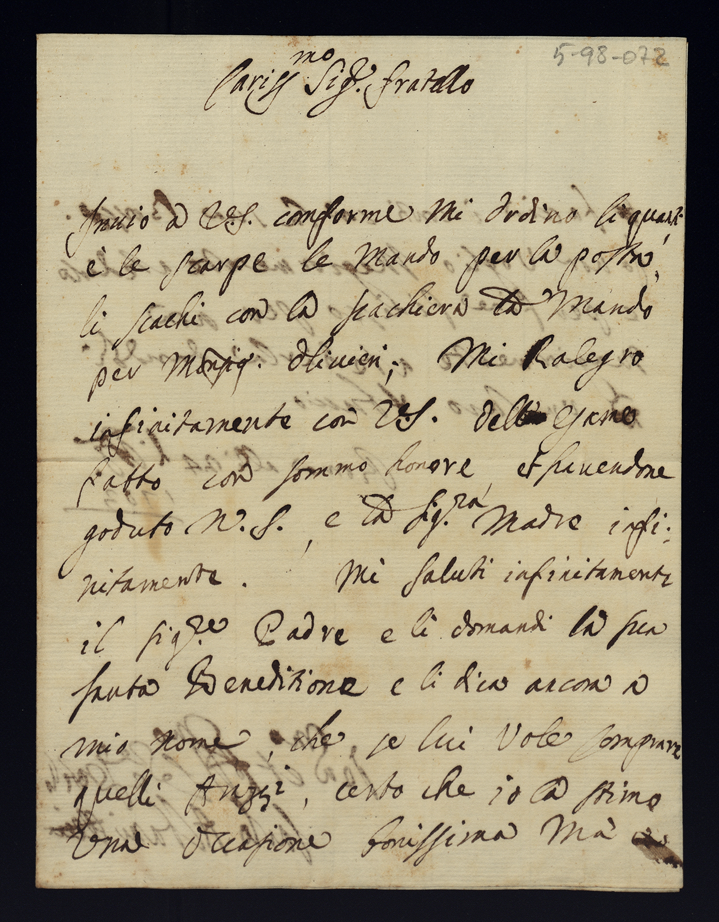 5-98-072
Cariss.mo Sig.r fratello
Invio à V.S. conforme mi ordino li quanti
e le scarpe le Mando per la posta,
li scachi con la scachiera la Mando
per Monsig.r Olivieri; Mi Ralegro
infinitamente con V.S. dell Esame
fatto con sommo honore, et havendone
goduto N.S., e la Sig.ra Madre infi-
nitamente. Mi saluti infinitamente
il Sig.re Padre e li domandi la sua
santa Beneditione e li dica ancora a
mio nome, che se lui vole comprare
quelli, certo che io la stimo
Una occasione bonissima Ma